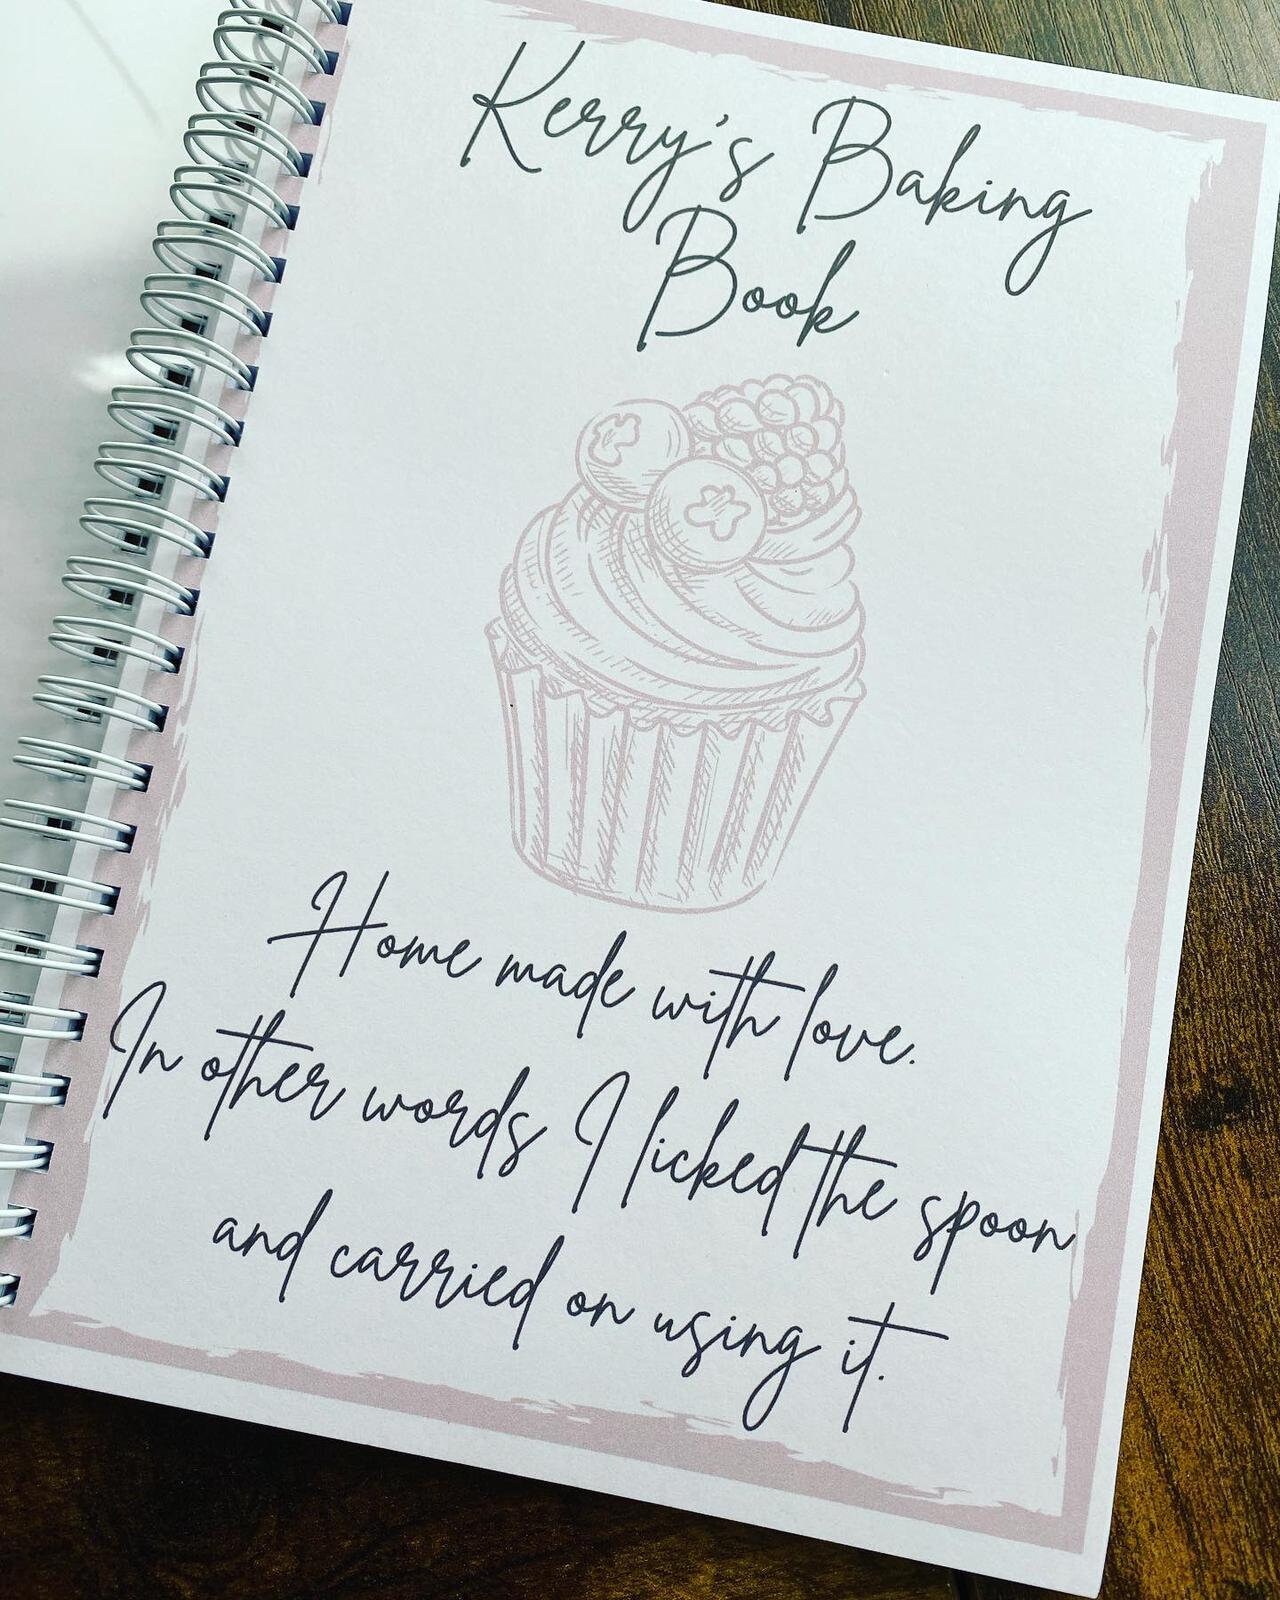 Kerry's Baking
Book
Home made with love.
In other words I licked the spoon
and carried on using it.